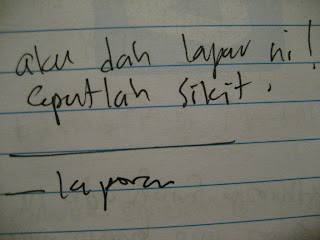 aku dah lapar ni!
cepatlah sikit.
— laporan